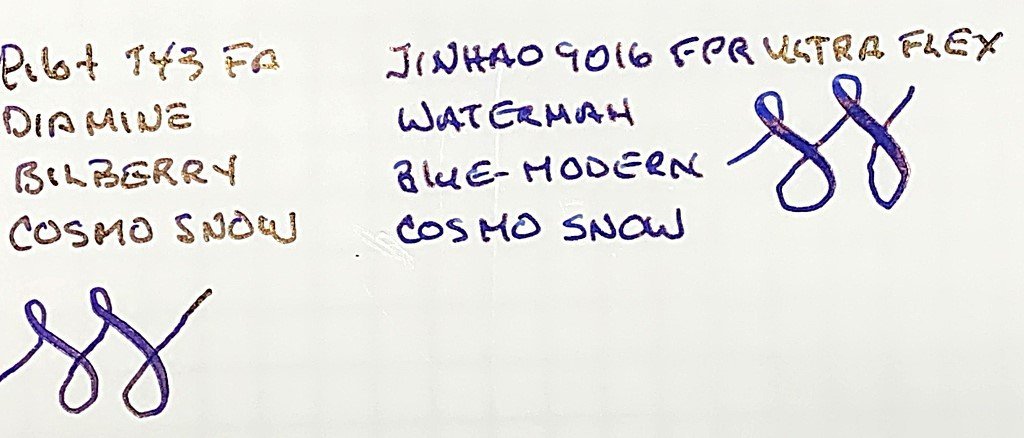 Pilot 743 FA
DIAMINE
BILBERRY
COSMO SNOW
JINHAO 9016 FPR ULTRA FLEX
WATERMAN
BLUE-MODERN
COSMO SNOW